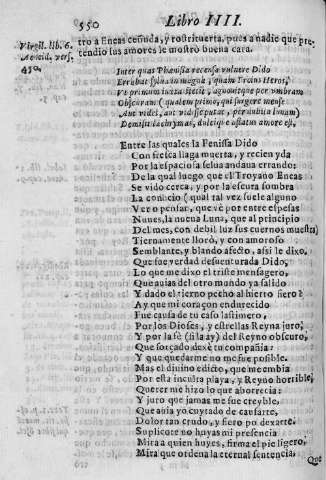 550 Libro IIII.
Virgil. lib. 6.
Aeneid. vers.
450.
tro a Eneas ceñuda, y rostrituerta, pues a nadie que pre-
tendio sus amores le mostrò buena cara.
Inter quas Phœnissa recens a vulnere Dido
Errabat sylua in magna, quam Troius Heros,
Vt primum iuxta stetit, agnouitque per vmbram
Obscuram (qualem primo, qui surgere mense
Aut videt, aut vidisse putat, per nubila lunam)
Demisit lachrymas, dulcique affatus amore est,
Entre las quales la Fenissa Dido
Con fresca llaga muerta, y recien yda
Por la espaciosa selua andaua errando:
De la qual luego que el Troyano Eneas
Se vido cerca, y por la escura sombra
La conocio (qual tal vez suele alguno
Ver o pensar, que vè por entre espesas
Nuues, la nueua Luna, que al principio
Del mes, con debil luz sus cuernos muestra)
Tiernamente llorò, y con amoroso
Semblante, y blando afecto, assi le dixo,
Que fue verdad desuenturada Dido,
Lo que me dixo el triste mensagero,
Que auias del otro mundo ya salido
Y dado el tierno pecho al hierro fiero?
Ay que mi coraçon endurecido
Fue causa de tu caso lastimero,
Por los Dioses, y estrellas Reyna juro,
Y por la fè (si la ay) del Reyno obscuro,
Que forçado dexè tu compañia:
Y que quedarme no me fue posible.
Mas el diuino edicto, que me embia
Por esta inculta playa, y Reyno horrible,
Querer me hizo lo que aborrecia:
Y juro que jamas me fue creyble,
Que auia yo cuytado de causarte,
Dolor tan crudo, y fiero por dexarte.
Suplicote no huyas mi presencia
Mira a quien huyes, firma el pie ligero,
Mira que ordena la eternal sentencia,
Que